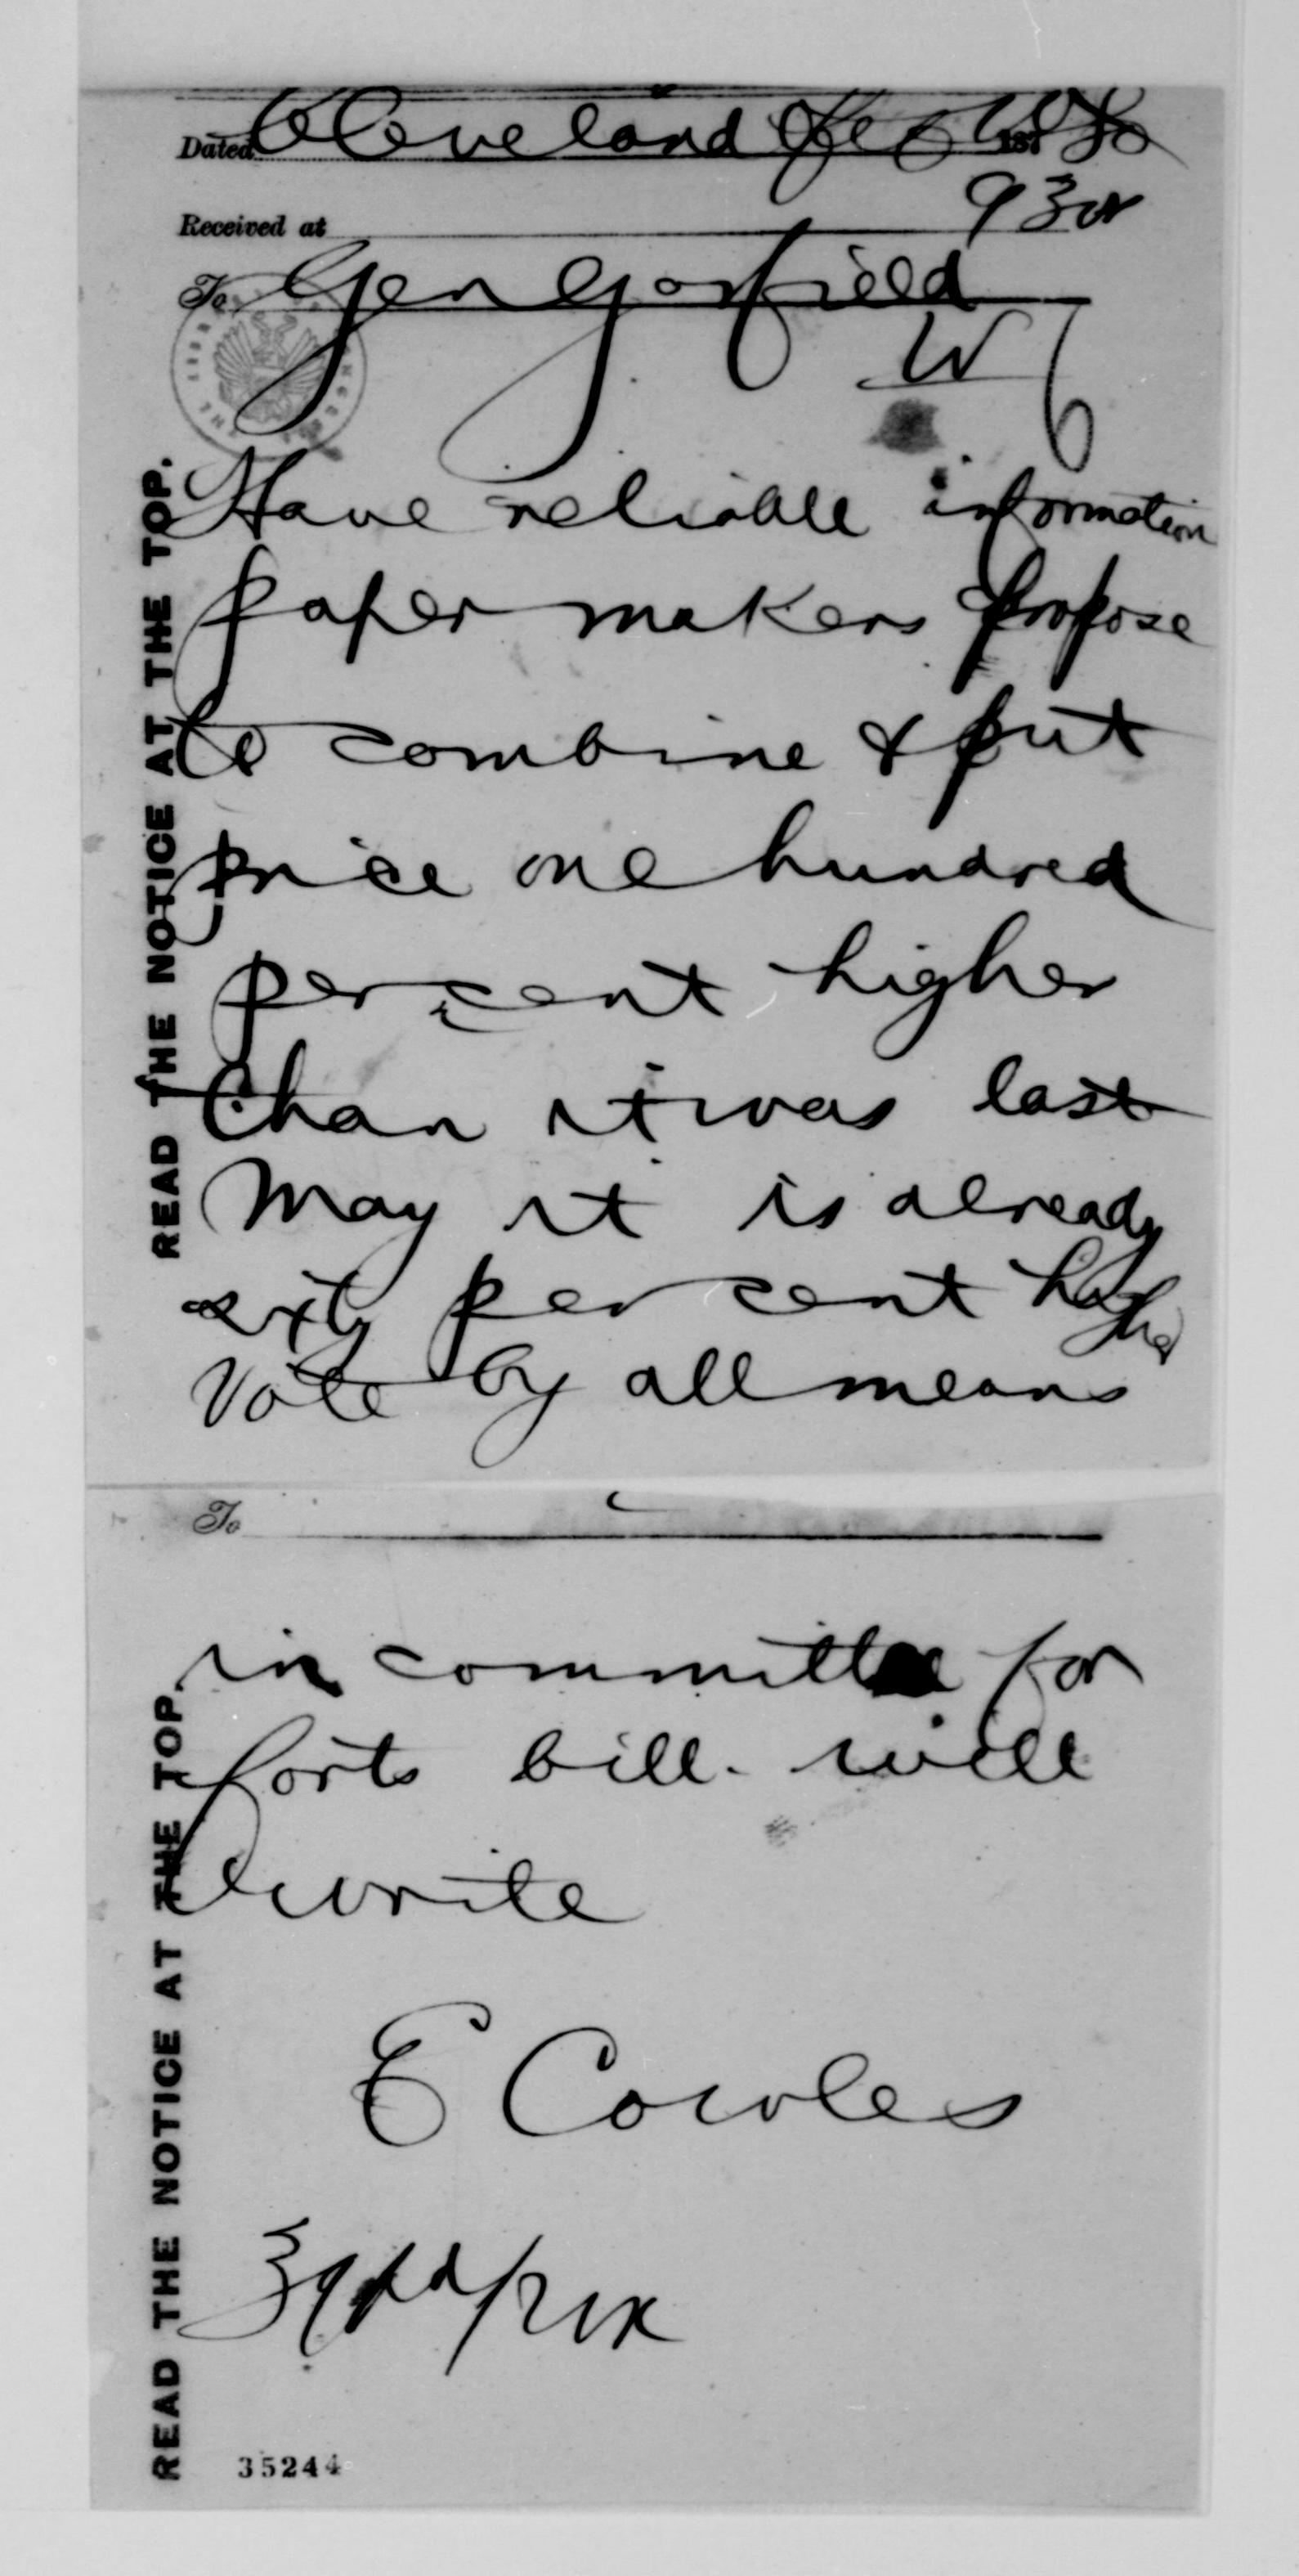 Dated Cleveland Feb 1880
Received at 930a
To Gen Garfield
W
READ THE NOTICE AT THE TOP.
Have reliable information
paper makers propose
to combine & put
price one hundred
per cent higher
than it was last
May it is already
sixty per cent higher
Vote by all means
To
READ THE NOTICE AT THE TOP.
in committee for
forts bill. will
write
E Cowles
35244